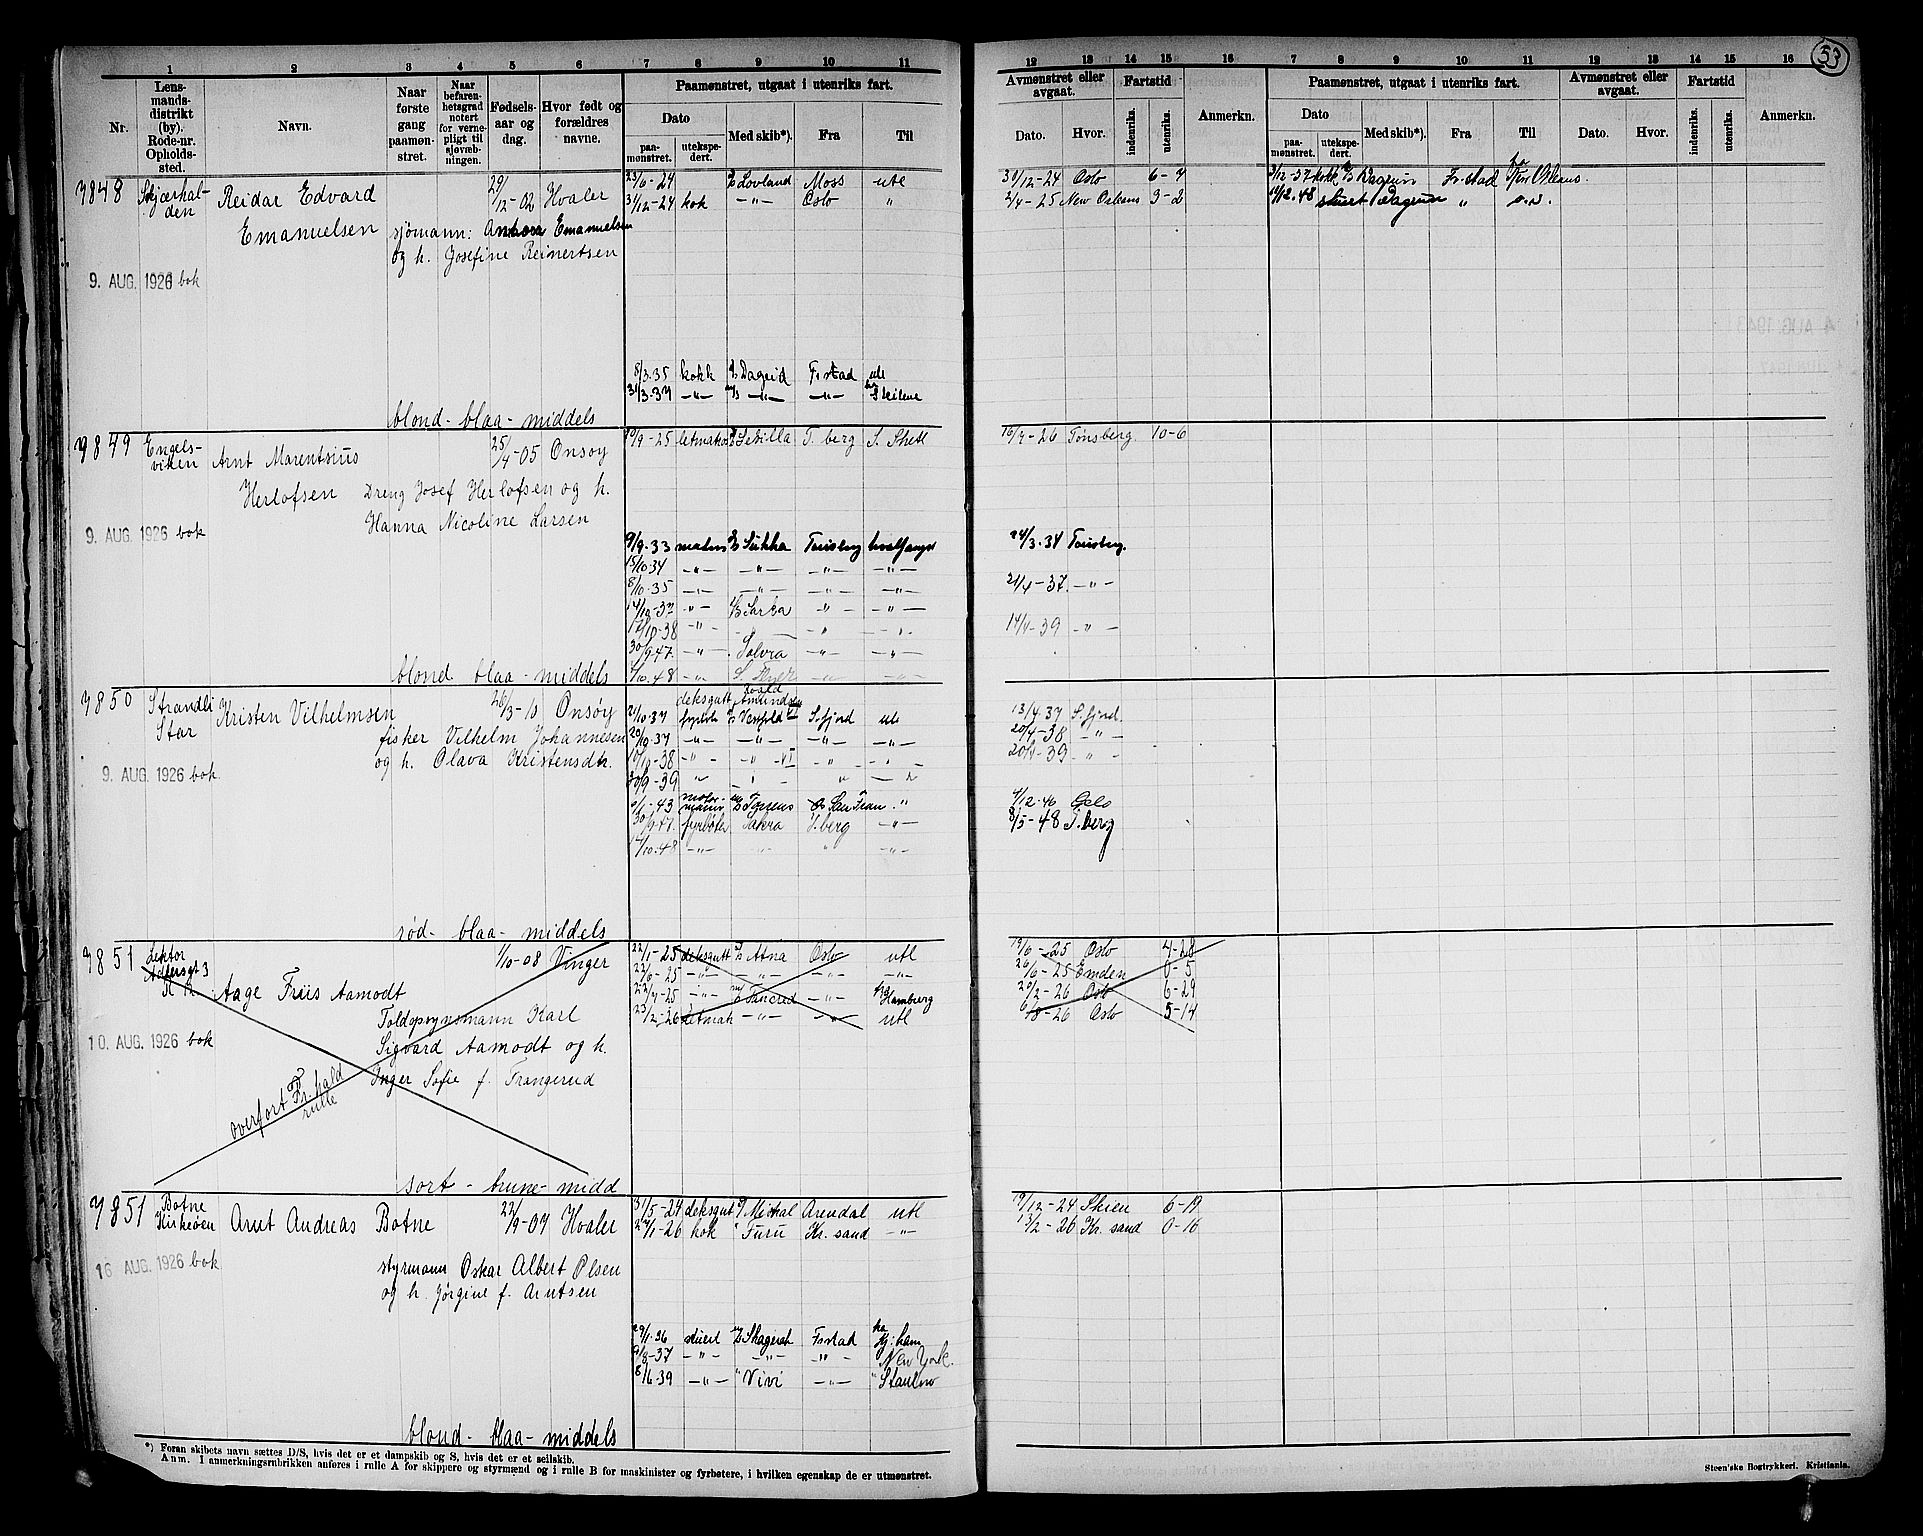 53
1 2 3 4 5 6 7 8 9 10 11
12 13 14 15 16 7 8 9 10 11 12 13 14 15 16
Nr.
Lens-
mands-
distrikt
(by).
Rode-nr.
Opholds-
sted.
Navn.
Naar
første
gang
paamøn-
stret.
Naar
befaren-
hetsgrad
notert
for verne-
pligt til
sjøvæb-
ningen.
Fødsels-
aar og
dag.
Hvor født og
forældres
navne.
Paamønstret, utgaat i utenriks fart.
Dato
paa-
mønstret.
utekspe-
dert.
Med skib*).
Fra
Til
Avmønstret eller
avgaat.
Dato.
Hvor.
Fartstid
indenriks.
utenriks.
Anmerkn.
Paamønstret, utgaat i utenriks fart.
Dato
paa-
mønstret.
utekspe-
dert.
Med skib*).
Fra
Til
Avmønstret eller
avgaat.
Dato.
Hvor.
Fartstid
indenriks.
utenriks.
Anmerkn.
7848 Skjærhal-
den
Reidar Edvard
Emanuelsen
29/12-02 Hvaler
sjømann: Emanuelsen
og h. Josefine Reinertsen
9. AUG. 1926 bok
23/6-24 Lovland Moss utl
31/12-24 kok -"- Oslo "
8/3.35 kokk Dagrid Frstad utl
31/3-37 -"- -"- -"-
blond- blaa- middels
31/12-24 Oslo 6-7
2/4-25 New Orleans 3-2
3/12-37 kokk Dagrun Fr.stad
14/12.48 stuert Dagrun "
7849 Engels-
viken
Arnt Marentsius
Herlofsen
25/4-05 Onsøy
Dreng Josef Herlofsen og h.
Hanna Nicoline Larsen
9. AUG. 1926 bok
10/9-25 letmatr Sevilla T. berg S. Shetl
9/9.33 matr Sukha Tønsberg hvalfangst
15/10.34 -"- -"- -"- -"-
8/10.35 -"- -"- -"- -"-
14/10-37 -"- -"- -"-
12/10-38 -"-
30/9.47. -"- Solvra -"- -"-
blond. blaa- middels
16/7-26 Tønsberg. 10-6
24/3.34 Tønsberg.
21/4-37. -"-
14/4-39 -"-
7850 Strandli
Star
Kristen Vilhelmsen
26/3-10 Onsøy
fisker Vilhelm Johannesen
og h. Olava Kristensdtr.
9. AUG. 1926 bok.
deksgutt Roald Amundsen
21/10.37 fyrbøter Vestfold S.fjord utl
20/10.37 -"- -"- -"- -"-
10/10-38 -"- -"- VI -"-
30/9-39 "
6/1-43 motor-
mann San Fran. "
30/9.47. fyrbøter T.berg -"-
12/10.48 -"-
rød- blaa- middels
13/4.37 S.fjord.
20/4-38 -"-
20/4-39 "
4/12.46 Oslo
8/5-48 T.berg
7851 Lektor
Adlersgt 3
R 12
Aage Friis Aamodt
1/10-08 Vinger
Toldopsynsmann Karl
Sigvard Aamodt og h.
Inger Sofie f. Frangerud
10. AUG. 1926 bok
overført Fr.hald
rulle
22/1-25 deksgutt Atna Oslo utl
23/6-25 -"- -"- -"- -"-
22/7-25 -"- Tancred -"- Hamburg
23/2-26 letmatr -"- -"- utl
sort- brune- midd
19/6-25 Oslo 4-28
26/6-25 Emden 0-5
20/2-26 Oslo 6-29
6/8-26 Oslo 5-14
7851 Botne
Kirkeøen
Arnt Andreas Botne
22/9-07 Hvaler
styrmann Oskar Albert Olsen
og h. Jørgine f. Arntsen
16 AUG. 1926 bok
31/5-24 deksgut Michal Arendal utl
27/1-26 kok " Furu Kr. sand -"-
29/1.36 stuert Skagerak Frstad
9/8-37 -"- -"- -"- New York.
8/6.39 -"- "Vivi -"-
blond- blaa- middels
19/12-24 Skien 6-19
13/2-26 Kr. sand 0-16
*) Foran skibets navn sættes D/S, hvis det er et dampskib og S, hvis det er et seilskib.
Anm. I anmerkningsrubrikken anføres i rulle A for skippere og styrmænd og i rulle B for maskinister og fyrbøtere, i hvilken egenskap de er utmønstret.
Steen'ske Bogtrykkeri. Kristiania.